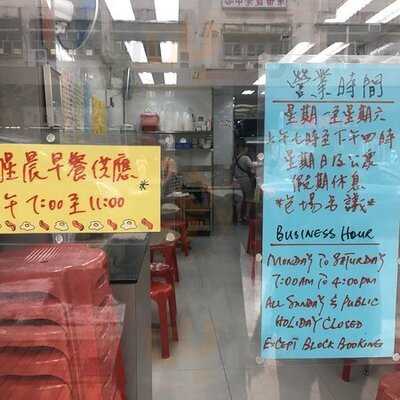 晨早餐供應
午 7:00 至 11:00
*
營業時間
星期一至星期六
上午七時至下午四時
星期日及公眾
假期休息
*包場另議*
BUSINESS HOUR
MONDAY TO SATURDAY
7:00AM TO 4:00PM
ALL SUNDAY & PUBLIC
HOLIDAY CLOSED
EXCEPT BLOCK BOOKING